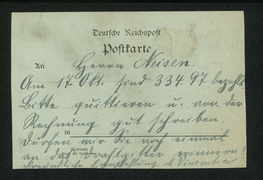 Deutsche Reichspost
Postkarte
An Herrn Neisen.
Am 17. Okt. sind 334.97 bezahlt
Bitte quittieren u. von der
Rechnung gut schreiben.
Dürfen wir Sie noch einmal
in
an das Drahtgitter erinnern?